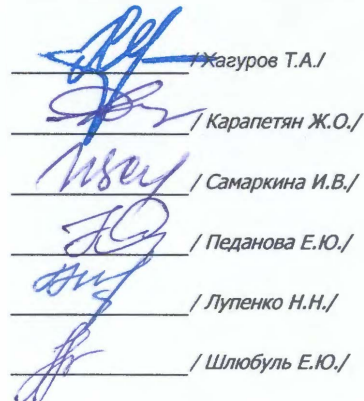 /Хагуров Т.А./
/ Карапетян Ж.О./
/ Самаркина И.В./
/ Педанова Е.Ю./
/ Лупенко Н.Н./
/ Шлюбуль Е.Ю./